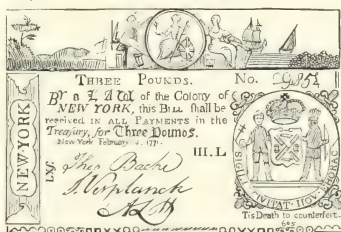 THREE POUNDS. No. 29851
By a LAW of the Colony of
NEW YORK, this BILL shall be
received IN ALL PAYMENTS in the
Treasury, for Three Pounds.
New York February 1771.
III. L
Theo Bache
S. Verplanck
NEW-YORK
LXſ.
SIGILL NOV
Tis Death to counterfeit.
605